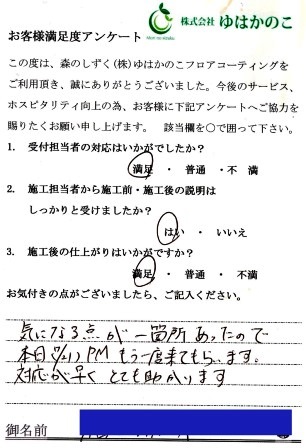 株式会社 ゆはかのこ
お客様満足度アンケート
この度は、森のしずく(株)ゆはかのこフロアコーティングを
ご利用頂き、誠にありがとうございました。今後のサービス、
ホスピタリティ向上の為、お客様に下記アンケートへご協力を
賜りたくお願い申し上げます。 該当欄を○で囲って下さい。
1. 受付担当者の対応はいかがでしたか？
満足 ・ 普通 ・ 不 満
2. 施工担当者から施工前・施工後の説明は
しっかりと受けましたか？
はい ・ いいえ
3. 施工後の仕上がりはいかがですか？
満足 ・ 普通 ・ 不満
お気付きの点がございましたら、ご記入ください。
気になる点が一箇所あったので
本日 PM もう一度来てもらいます。
対応が早く とても助かります
御名前